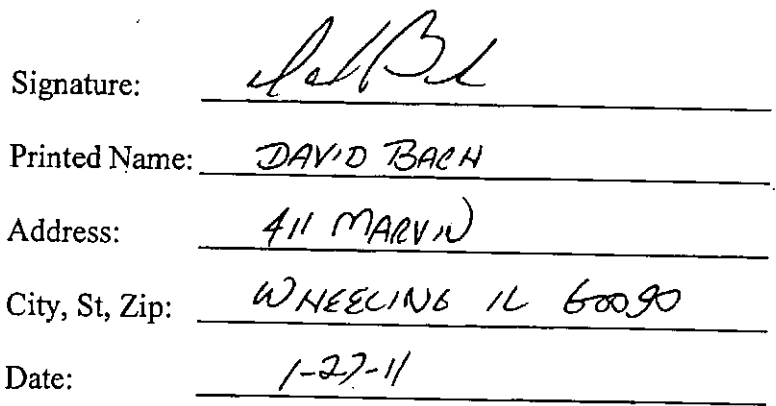 Signature:
Printed Name: DAVID BACH
Address: 411 MARVIN
City, St, Zip: WHEELING IL 60090
Date: 1-27-11